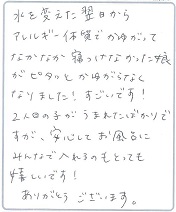 水を変えた翌日から
アレルギー体質でかゆがって
なかなか寝つけなかった娘
がピタッとかゆがらなく
なりました！すごいです！
2人目の子がうまれたばかりで
すが、安心してお風呂に
みんなで入れるのもとっても
嬉しいです！
ありがとうございます。